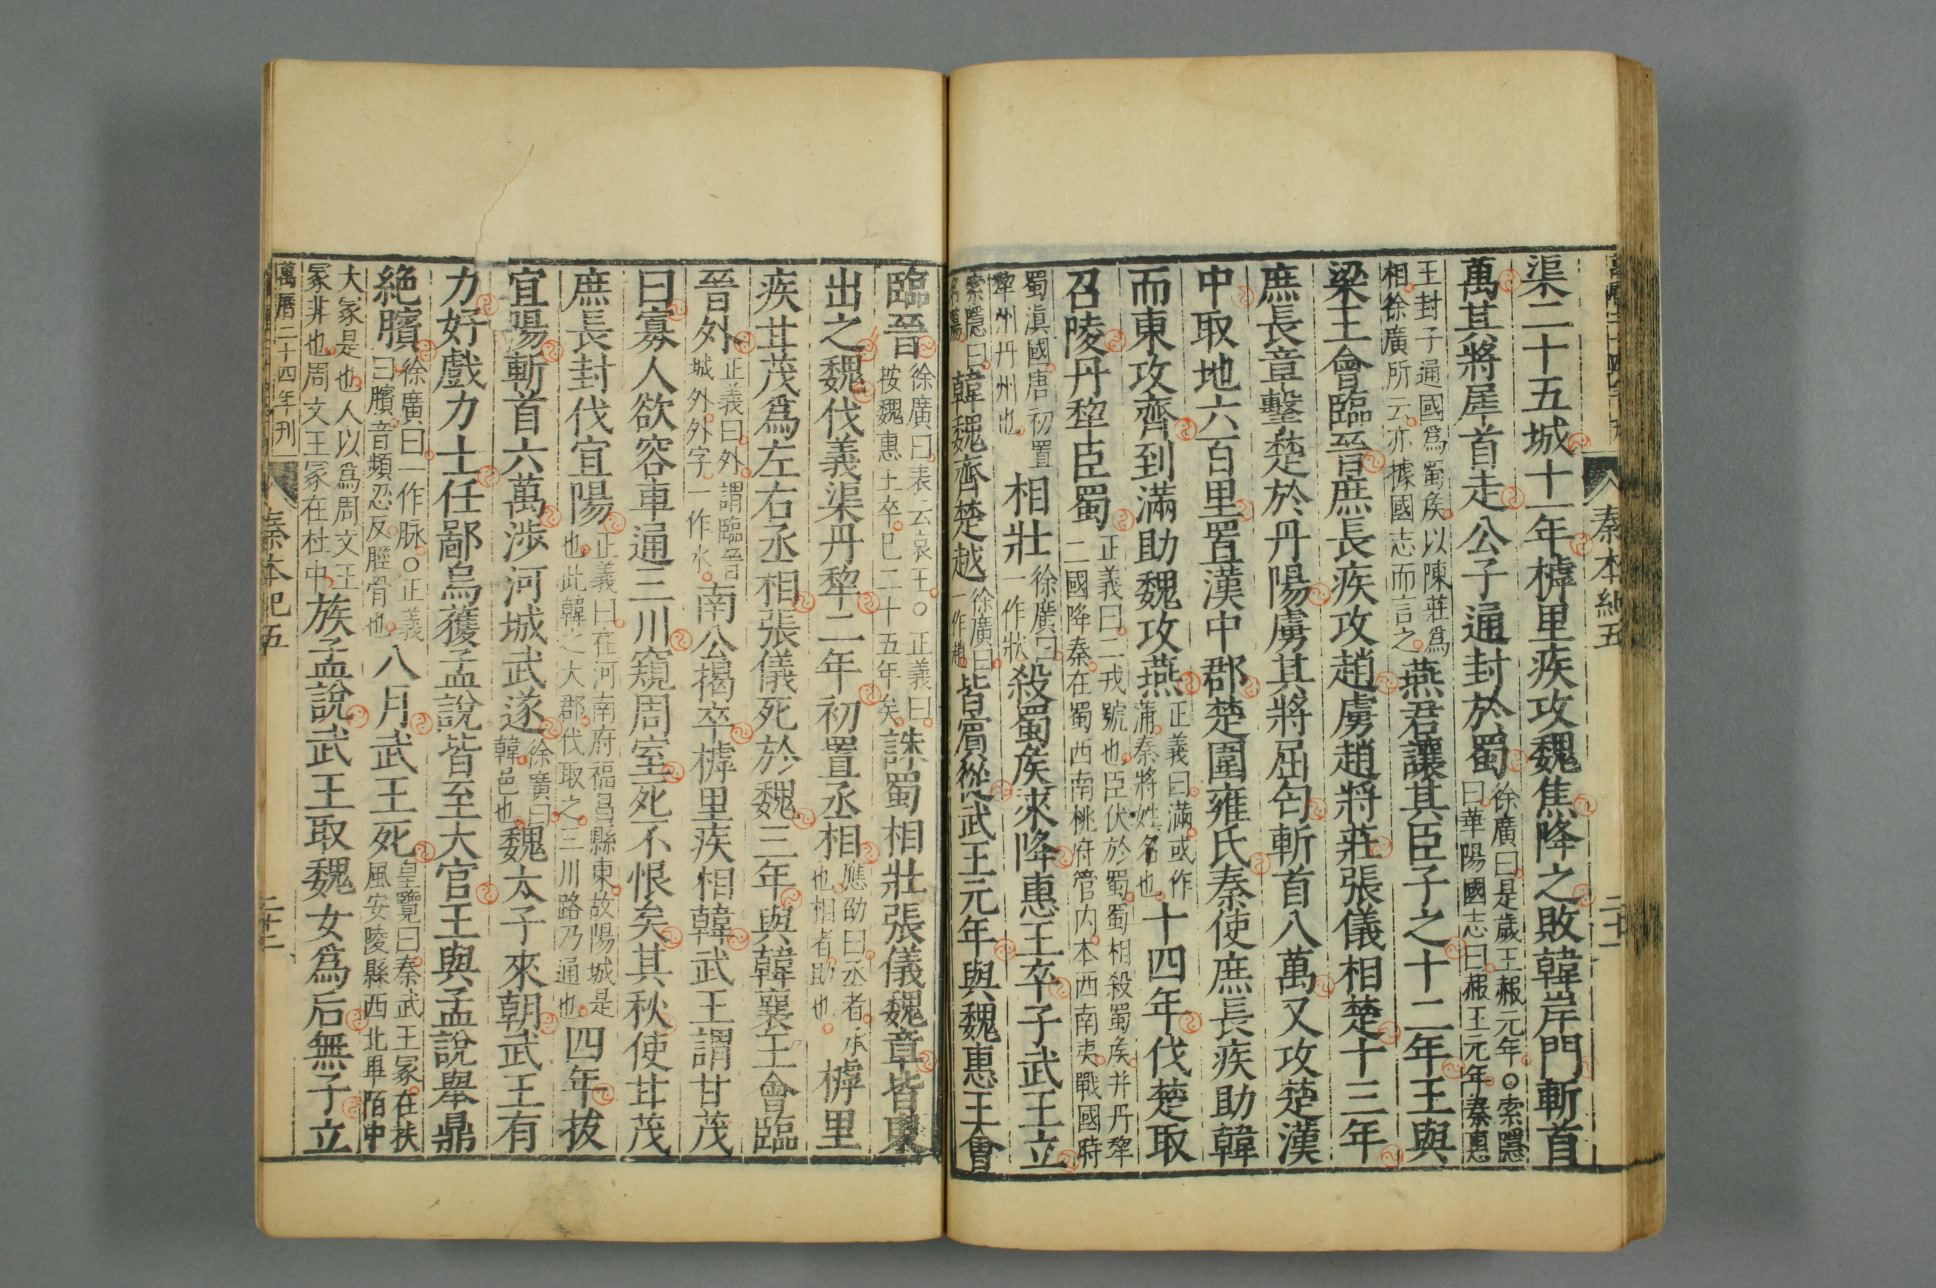 秦本紀五
渠二十五城十一年樗里疾攻魏焦降之敗韓岸門斬首
萬其將犀首走公子通封於蜀徐廣曰是歲王赧元年○索隱曰華陽國志曰赧王元年秦惠
王封子通國爲蜀矦以陳莊爲相徐廣所云亦據國志而言之燕君讓其臣子之十二年王與
梁王會臨晉庶長疾攻趙虜趙將莊張儀相楚十三年
庶長章擊楚於丹陽虜其將屈匄斬首八萬又攻楚漢
中取地六百里置漢中郡楚圍雍氏秦使庶長疾助韓
而東攻齊到滿助魏攻燕正義曰滿或作蒲秦將姓名也十四年伐楚取
召陵丹犂臣蜀正義曰二戎號也臣伏於蜀蜀相殺蜀矦并丹犂二國降秦在蜀西南桃府管内本西南夷戰國時
蜀滇國唐初置犂州丹州也相壯徐廣曰一作狀殺蜀矦來降惠王卒子武王立
索隱曰名蕩韓魏齊楚越徐廣曰一作趙皆賓從武王元年與魏惠王會
臨晉徐廣曰表云哀王○正義曰按魏惠王卒已二十五年矣誅蜀相壯張儀魏章皆東
出之魏伐義渠丹犂二年初置丞相應劭曰丞者承也相者助也樗里
疾甘茂爲左右丞相張儀死於魏三年與韓襄王會臨
晉外正義曰外謂臨晉城外外字一作水南公揭卒樗里疾相韓武王謂甘茂
曰寡人欲容車通三川窺周室死不恨矣其秋使甘茂
庶長封伐宜陽正義曰在河南府福昌縣東故陽城是也此韓之大郡伐取之三川路乃通也四年拔
宜陽斬首六萬涉河城武遂徐廣曰韓邑也魏太子來朝武王有
力好戲力士任鄙烏獲孟說皆至大官王與孟說舉鼎
絶臏徐廣曰一作脉○正義曰臏音頻忍反脛骨也八月武王死皇覽曰秦武王冢在扶風安陵縣西北畢陌中
大冢是也人以爲周文王冢非也周文王冢在杜中族孟說武王取魏女爲后無子立
萬曆二十四年刊
秦本紀五
二十二